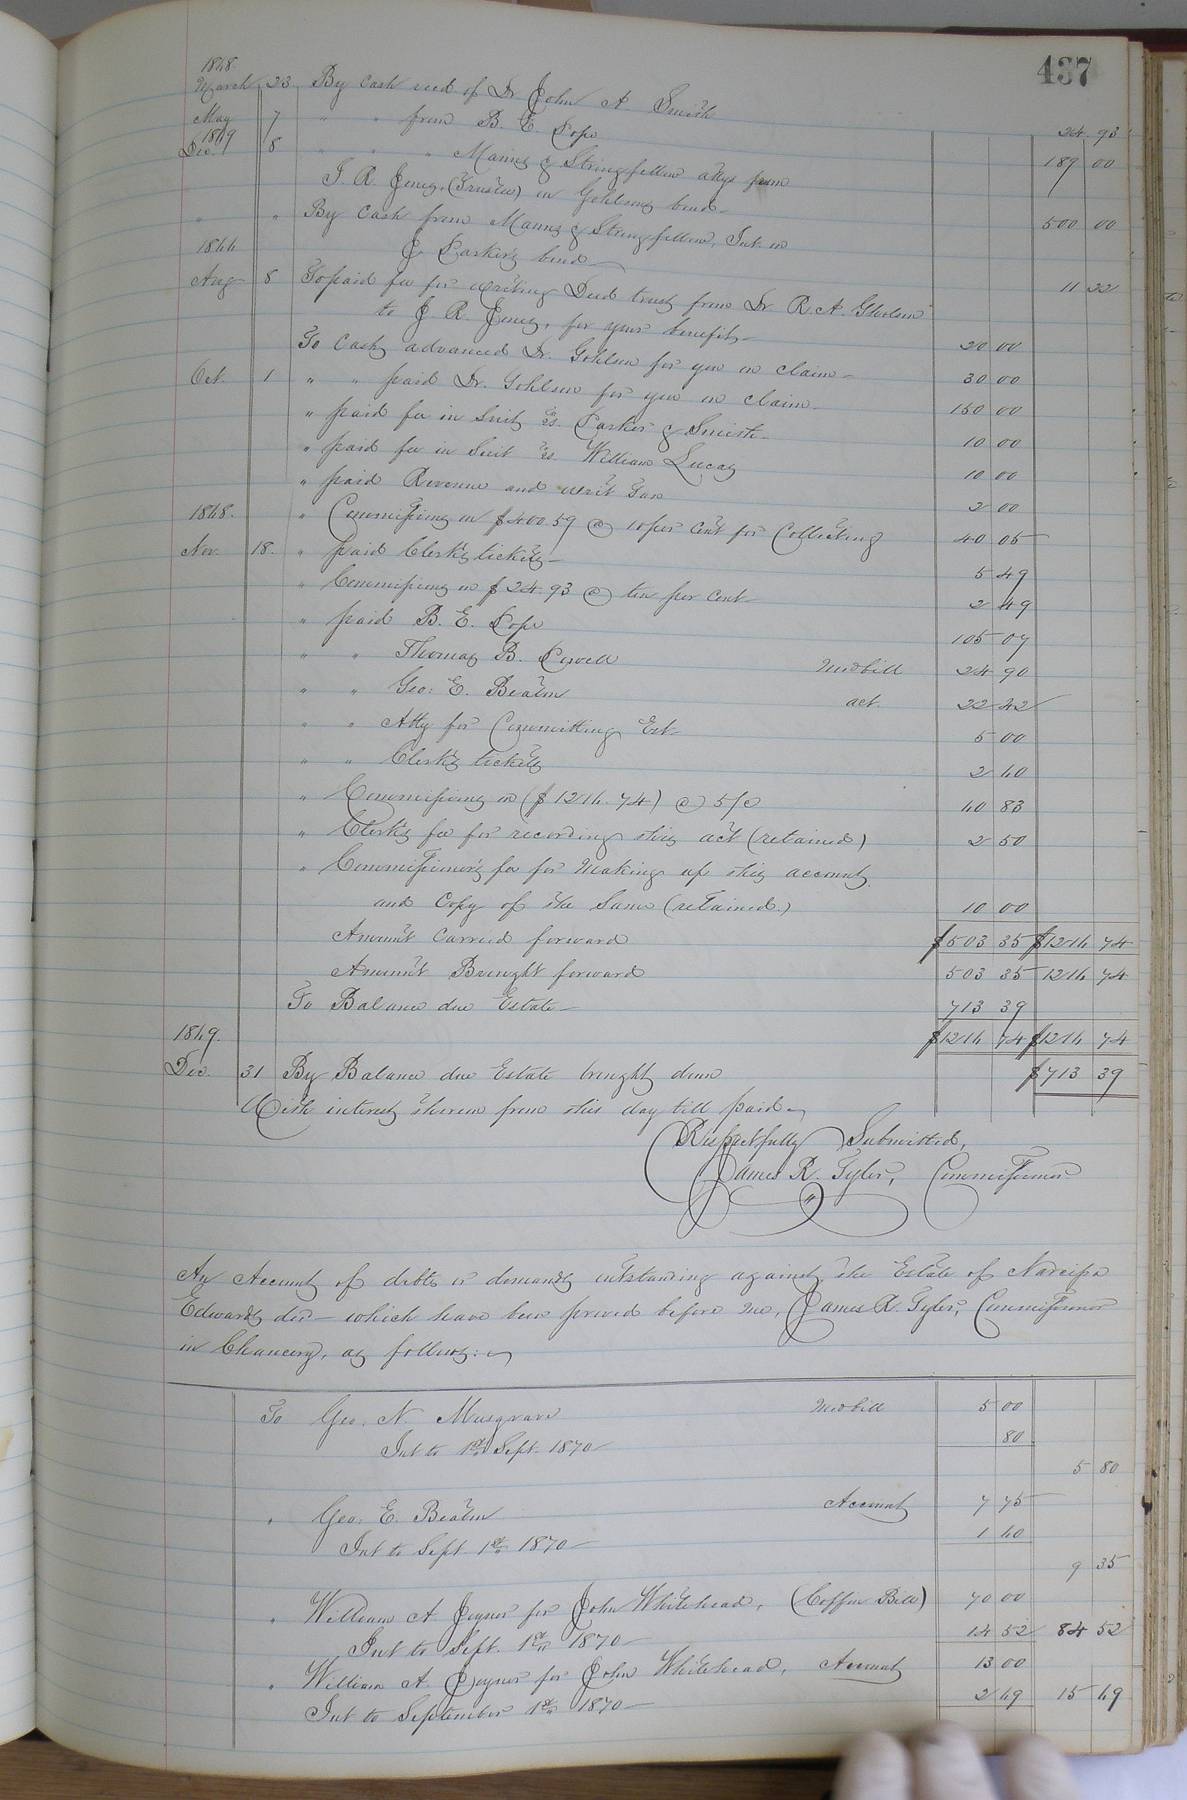 437
1868
March 23 By Cash recd of Dr John A Smith 24 93
May 7 " " from B. E. Pope 189 00
1869
Dec. 8 " " " Manny & Stringfellow attys from
J. R. Jones, (Trustee) on Gholsons bond 500 00
" " By Cash from Manny & Stringfellow, Int. on
J Parker's bond 11 22
1866
Aug 8 To paid fee for writing Deed trust from Dr. R. A. Gholson
to J. R. Jones, for your benefit 20 00
To Cash advanced Dr. Gohlson for you on claim 30 00
Oct. 1 " " paid Dr. Gohlson for you on claim 150 00
" paid fee in Suit vs. Parker & Smith 10 00
" paid fee in Suit vs. William Lucas 10 00
" paid Revenue and writ Tax 2 00
1868. " Commissions on $400.59 @ 10 per cent for Collecting 40 05
Nov. 18. " paid Clerks tickets 5 49
" Commissions on $24.93 @ ten per cent 2 49
" paid B. E. Pope 105 07
" " Thomas B. Powell Med bill 24 90
" " Geo: E. Beaton act. 22 42
" " Atty for Committing Est 5 00
" " Clerk's tickets 2 60
" Commissions on ($1216.74) @ 5/c 60 83
" Clerk's fee for recording this act (retained) 2 50
" Commissioner's fee for Making up this account,
and Copy of the Same (retained.) 10 00
Amount Carried forward $503 35 $1216 74
Amount Brought forward 503 35 1216 74
To Balance due Estate 713 39
1869. $1216 74 $1216 74
Dec. 31 By Balance due Estate brought down $713 39
With interest thereon from this day till paid
Respectfully Submitted,
James R. Tyler, Commissioner
An Account of debts or demands outstanding against the Estate of Narcissa
Edwards dec which have been proved before me, James R. Tyler, Commissioner
in Chancery, as follows:
To Geo. N. Musgrave Med bill 5 00
Int to 1st Sept. 1870 80
5 80
" Geo: E. Beaton Account 7 75
Int to Sept 1st 1870 1 60
9 35
" William A Joyner for John Whitehead, (Coffin Bill) 70 00
Int to Sept. 1st 1870 14 52 84 52
" William A. Joyner for John Whitehead, Account 13 00
Int to September 1st 1870 2 69 15 69